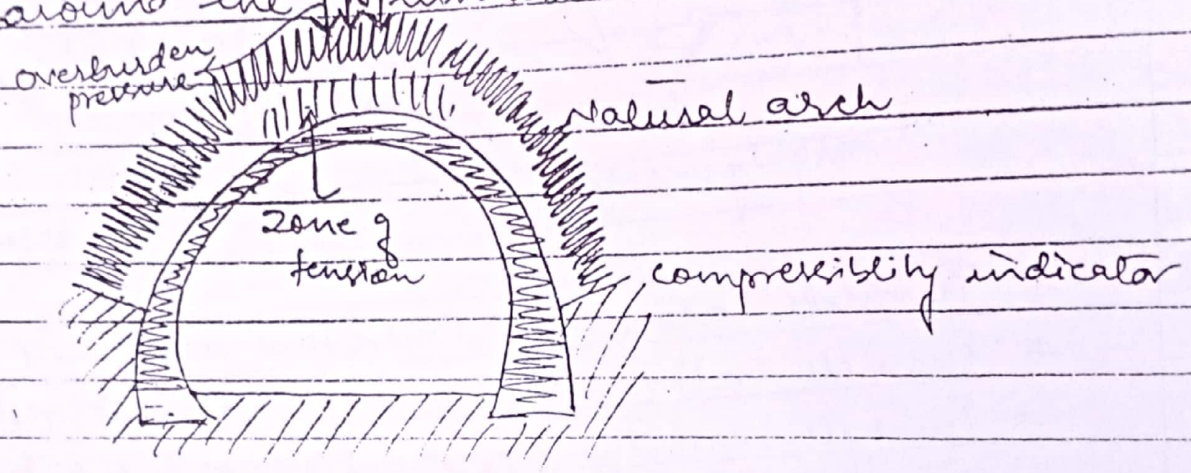 around the
overburden
pressure
Natural arch
Zone of
tension
compressibility indicator